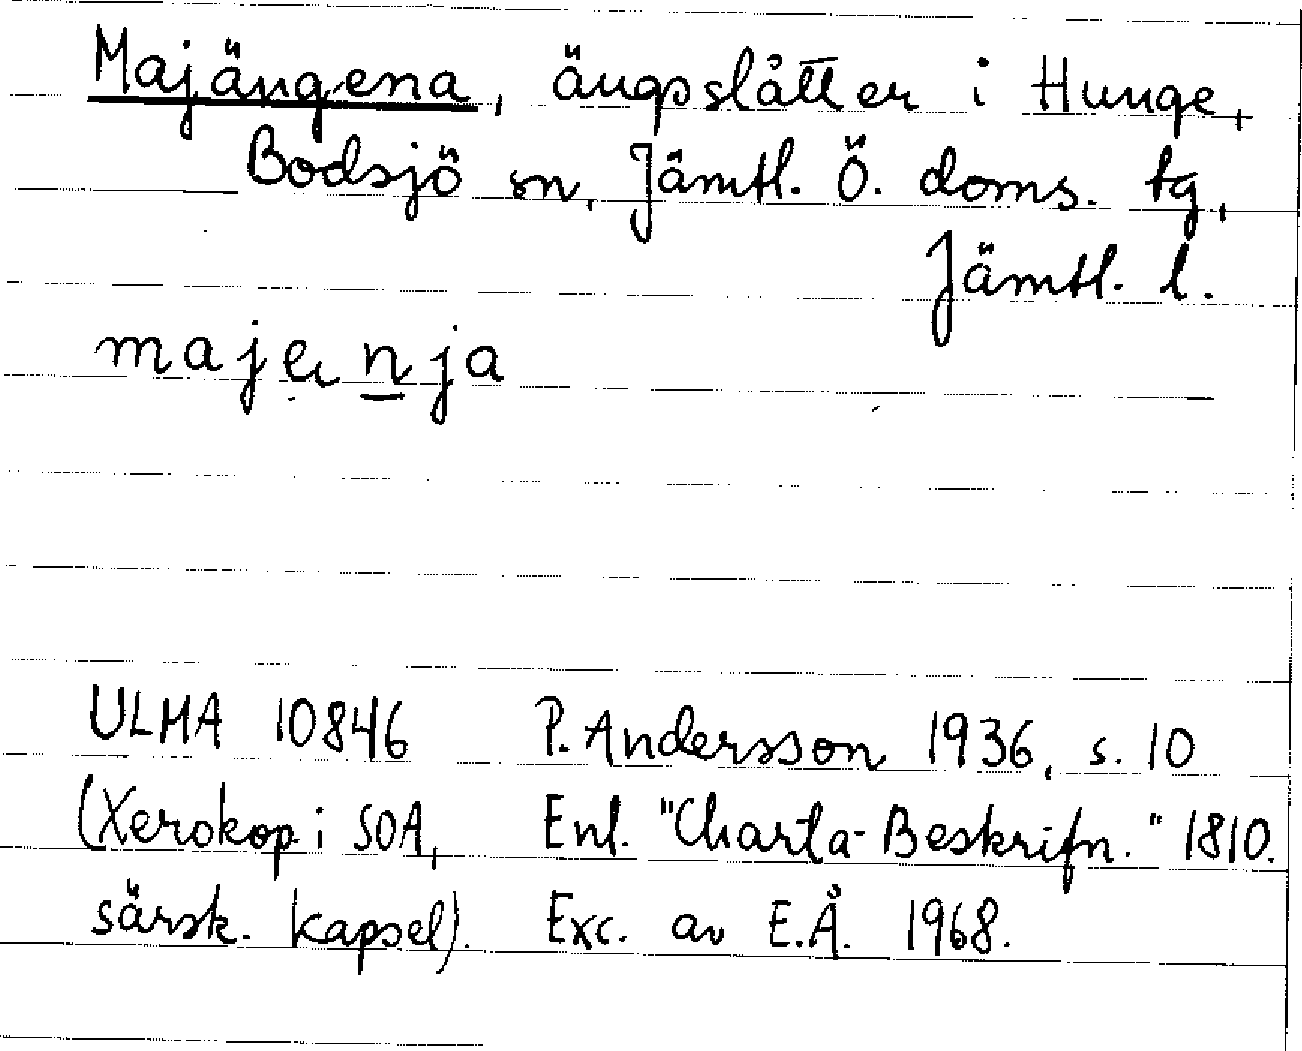 Majängena, ängsslåtter i Hunge,
Bodsjö sn, Jämtl. Ö. doms. tg,
Jämtl. l.
majenja
ULMA 10846 P. Andersson 1936, s. 10
(Xerokop. i SOA, Enl. "Charta-Beskrifn." 1810.
särsk. kapsel). Exc. av E.Å. 1968.